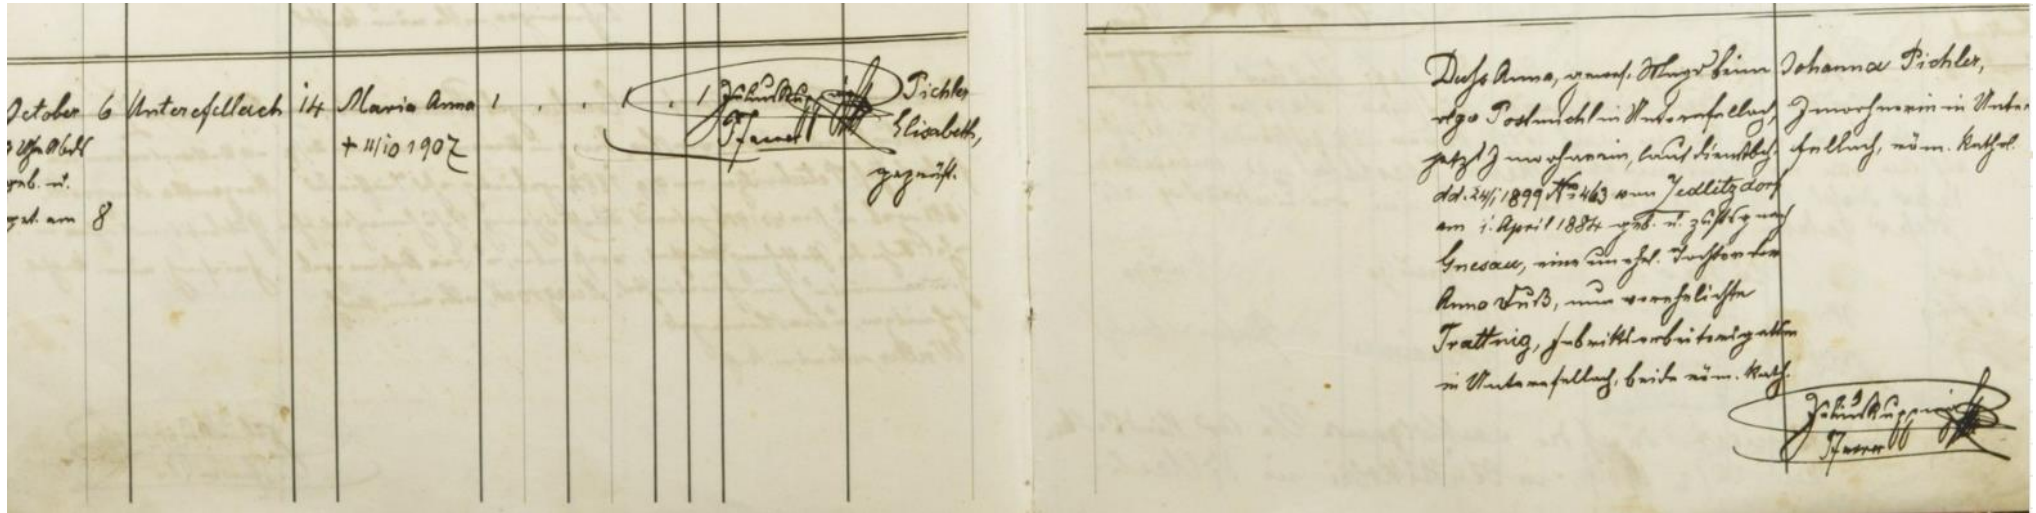 October 6 Unterefellach 14 Maria Anna 1 . . 1 . 1
Pfarrer
Pichler
Elisabeth,
geprüft.
† 11/10 1907
Uhr Abds
geb. u.
get. am 8
Duss Anna, gewes. Magd beim
vlgo Postmichl in Unterefellach,
jetzt Inwohnerin, laut Dienstbch.
dd. 24/1 1899 Nro 463 von Jedlitzdorf
am 1. April 1884 geb. u. zustg nach
Gnesau, eine unehel. Tochter der
Anna Duß, nun verehelichte
Trattnig, Fabriksarbeitersgattin
in Unterefellach, beide röm. kath.
Johanna Pichler,
Inwohnerin in Unter-
fellach, röm. kathol.
Pfarrer